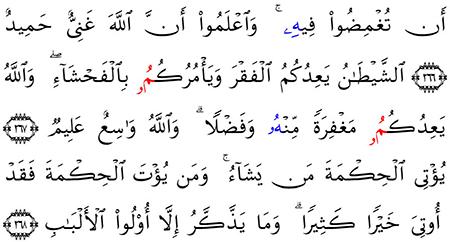 أَن تُغْمِضُواْ فِيهِۦ ۚ وَٱعْلَمُواْ أَنَّ ٱللَّهَ غَنِىٌّ حَمِيدٌ
٢٦٦ ٱلشَّيْطَٰنُ يَعِدُكُمُ ٱلْفَقْرَ وَيَأْمُرُكُمُۥ بِٱلْفَحْشَآءِ ۖ وَٱللَّهُ
يَعِدُكُمُۥ مَغْفِرَةً مِّنْهُۥ وَفَضْلًا ۗ وَٱللَّهُ وَٰسِعٌ عَلِيمٌ ٢٦٧
يُؤْتِى ٱلْحِكْمَةَ مَن يَشَآءُ ۚ وَمَن يُؤْتَ ٱلْحِكْمَةَ فَقَدْ
أُوتِىَ خَيْرًا كَثِيرًا ۗ وَمَا يَذَّكَّرُ إِلَّا أُوْلُواْ ٱلْأَلْبَٰبِ ٢٦٨